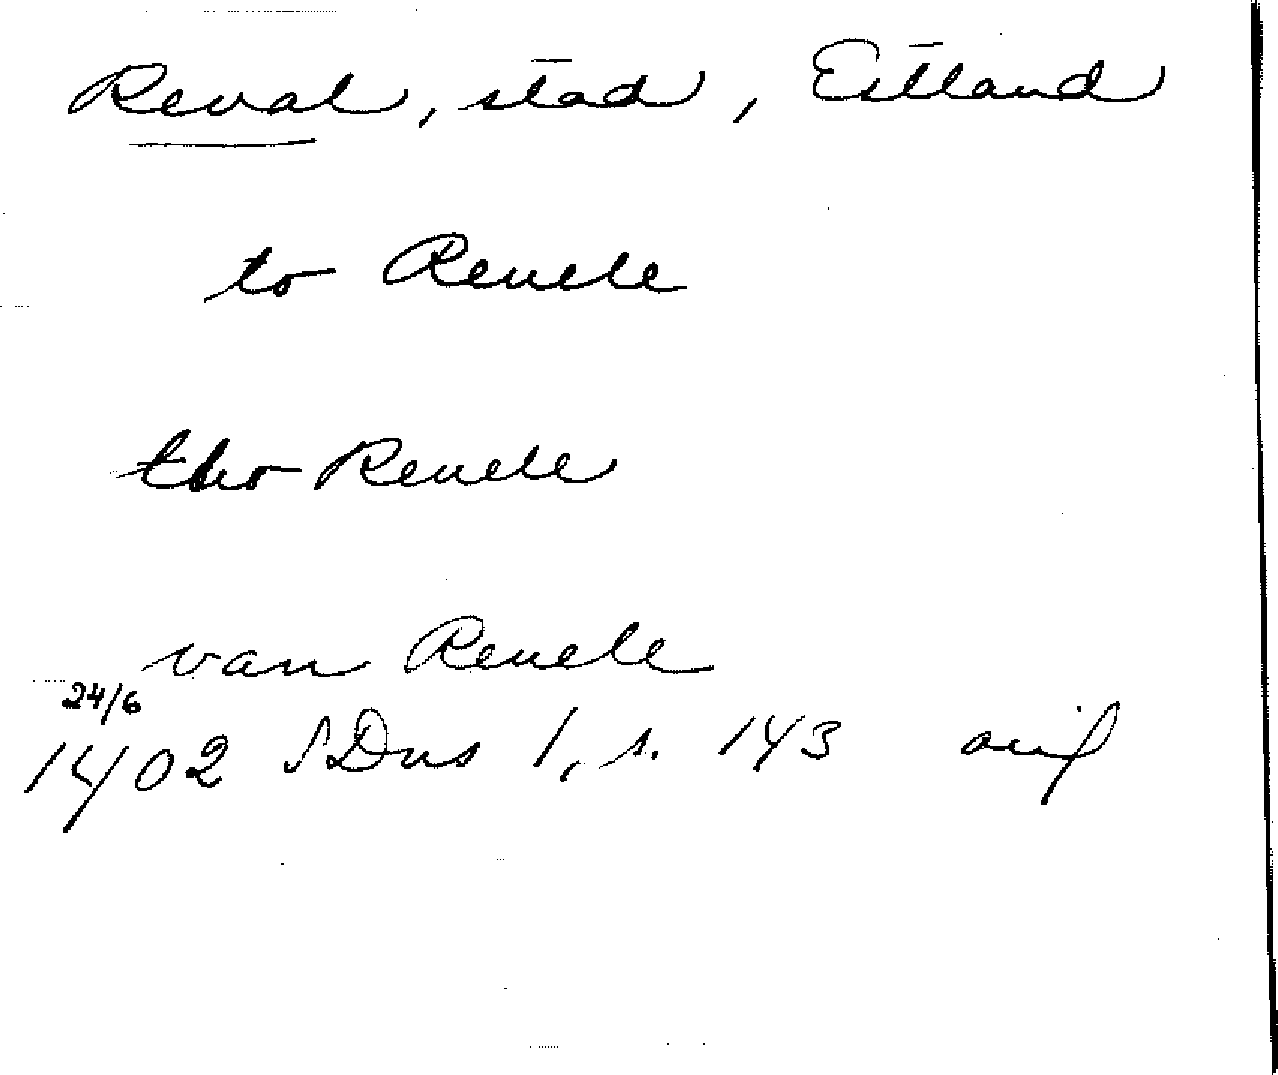 Reval, stad, Estland
to Reuele
tho Reuele
van Reuele
24/6
1402 SDns 1, s. 143 avs